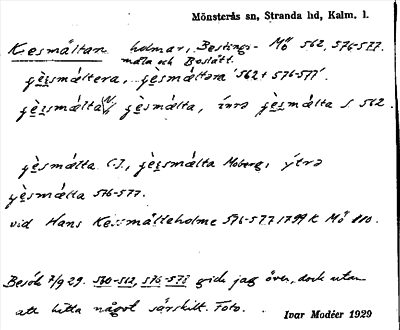 Mönsterås sn, Stranda hd, Kalm. l.
Kesmältan holmar, Bestings- Mö 562, 576-577.
måla och Boslätt.
jèsmáltera, jèsmáltöra 562 + 576-577.
jèsmálta, jèsmálta, ínrə jèsmálta S 562.
jèsmálta G.J., jèsmálta Moberg, ýtrə
jèsmálta 576-577.
vid Hans Kessmälteholme 576-577 1799 K Mö 110.
Besök 7/9 29. 530-512, 576-577 gick jag över, dock utan
att hitta något särskilt. Foto. Ivar Modéer 1929